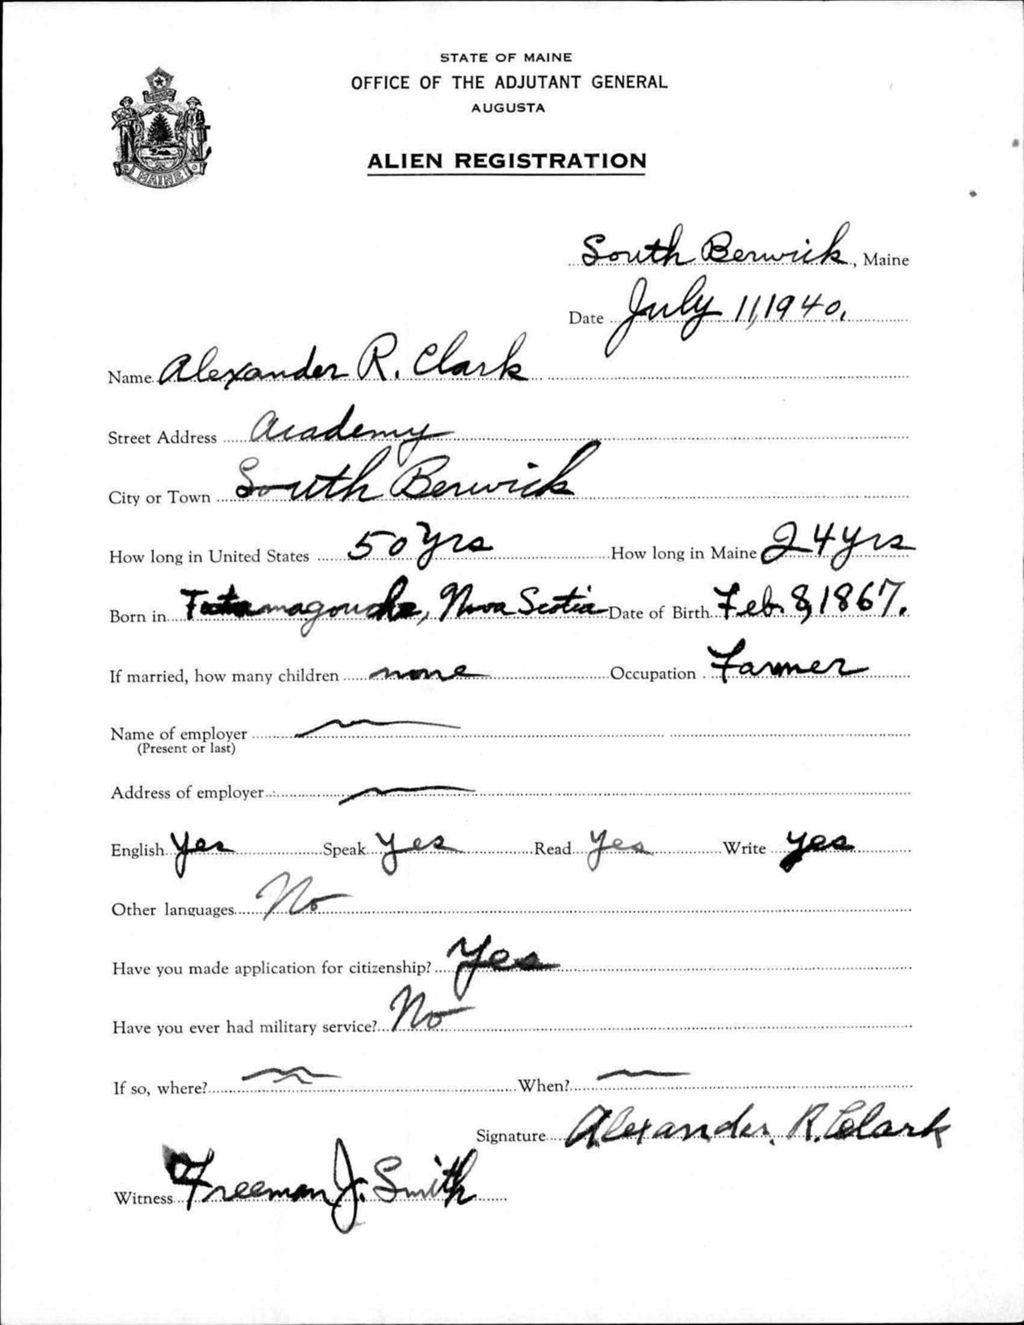 STATE OF MAINE
OFFICE OF THE ADJUTANT GENERAL
AUGUSTA
ALIEN REGISTRATION
MAINE
South Berwick, Maine
Date July 11, 1940.
Name Alexander R. Clark
Street Address Academy
City or Town South Berwick
How long in United States 50 yrs How long in Maine 24 yrs
Born in Tatamagouche, Nova Scotia Date of Birth Feb. 8, 1867.
If married, how many children none Occupation Farmer
Name of employer
(Present or last)
Address of employer
English Yes Speak Yes Read Yes Write Yes
Other languages No
Have you made application for citizenship? Yes
Have you ever had military service? No
If so, where? When?
Signature Alexander. R. Clark
Witness Freeman J. Smith